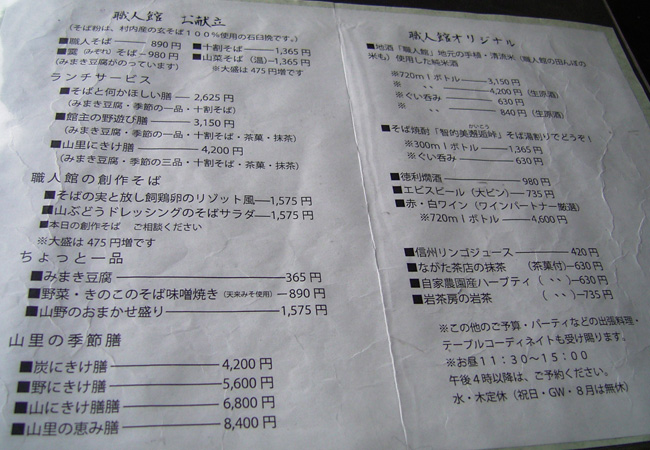 職人館 お献立
(そば粉は、村内産の玄そば１００%使用の石臼挽です。)
■職人そば 890円 ■十割そば 1,365円
■霙(みぞれ)そば 980円 ■山菜そば(温) 1,365円
(みまき豆腐がのっています) ※大盛は475円増です
ランチサービス
■そばと何かほしい膳 2,625円
(みまき豆腐・季節の一品・十割そば)
■館主の野遊び膳 3,150円
(みまき豆腐・季節の二品・十割そば・茶菓・抹茶)
■山里にきけ膳 4,200円
(みまき豆腐・季節の三品・十割そば・茶菓・抹茶)
職人館の創作そば
■そばの実と放し飼鶏卵のリゾット風 1,575円
■山ぶどうドレッシングのそばサラダ 1,575円
■本日の創作そば ご相談ください
※大盛は475円増です
ちょっと一品
■みまき豆腐 365円
■野菜・きのこのそば味噌焼き(天来みそ使用) 890円
■山野のおまかせ盛り 1,575円
山里の季節膳
■炭にきけ膳 4,200円
■野にきけ膳 5,600円
■山にきけ膳膳 6,800円
■山里の恵み膳 8,400円
職人館オリジナル
■地酒「職人館」地元の手植・清流米(職人館の田んぼの
米も)使用した純米酒
※720mlボトル 3,150円
※ 〃 4,200円(生原酒)
※ぐい呑み 630円
※ 〃 840円(生原酒)
■そば焼酎「智的美邂逅峠」そば湯割りでどうぞ!
かいこう
※300mlボトル 1,365円
※ぐい呑み 630円
■徳利燗酒 980円
■エビスビール(大ビン) 735円
■赤・白ワイン(ワインパートナー厳選)
※720mlボトル 4,600円
■信州リンゴジュース 420円
■ながた茶店の抹茶 (茶菓付) 630円
■自家農園産ハーブティ( 〃 ) 630円
■岩茶房の岩茶 ( 〃 ) 735円
※この他のご予算・パーティなどの出張料理・
テーブルコーディネイトも受け賜ります。
※お昼１１:３０〜１５:００
午後４時以降は、ご予約ください。
水・木定休(祝日・GW・８月は無休)